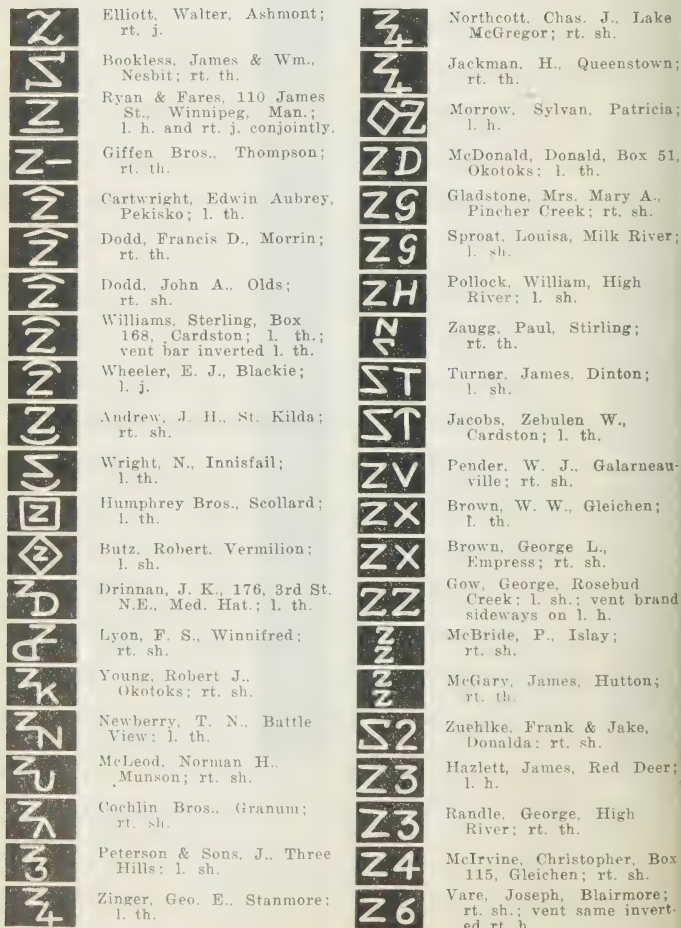 Elliott, Walter, Ashmont;
rt. j.
Bookless, James & Wm.,
Nesbit; rt. th.
Ryan & Fares, 110 James
St., Winnipeg, Man.;
l. h. and rt. j. conjointly.
Giffen Bros., Thompson;
rt. th.
Cartwright, Edwin Aubrey,
Pekisko; l. th.
Dodd, Francis D., Morrin;
rt. th.
Dodd, John A., Olds;
rt. sh.
Williams, Sterling, Box
168, Cardston; l. th.;
vent bar inverted l. th.
Wheeler, E. J., Blackie;
l. j.
Andrew, J. H., St. Kilda;
rt. sh.
Wright, N., Innisfail;
l. th.
Humphrey Bros., Scollard;
l. th.
Butz, Robert, Vermilion;
l. sh.
Drinnan, J. K., 176, 3rd St.
N.E., Med. Hat.; l. th.
Lyon, F. S., Winnifred;
rt. sh.
Young, Robert J.,
Okotoks; rt. sh.
Newberry, T. N., Battle
View; l. th.
McLeod, Norman H.,
Munson; rt. sh.
Cochlin Bros., Granum;
rt. sh.
Peterson & Sons, J., Three
Hills; l. sh.
Zinger, Geo. E., Stanmore;
l. th.
Z4 Northcott, Chas. J., Lake
McGregor; rt. sh.
Z4 Jackman, H., Queenstown;
rt. th.
◇Z Morrow, Sylvan, Patricia;
l. h.
ZD McDonald, Donald, Box 51,
Okotoks; l. th.
ZG Gladstone, Mrs. Mary A.,
Pincher Creek; rt. sh.
Z9 Sproat, Louisa, Milk River;
l. sh.
ZH Pollock, William, High
River; l. sh.
Zaugg, Paul, Stirling;
rt. th.
Turner, James, Dinton;
l. sh.
Jacobs, Zebulen W.,
Cardston; l. th.
ZV Pender, W. J., Galarneau-
ville; rt. sh.
ZX Brown, W. W., Gleichen;
l. th.
ZX Brown, George L.,
Empress; rt. sh.
ZZ Gow, George, Rosebud
Creek; l. sh.; vent brand
sideways on l. h.
McBride, P., Islay;
rt. sh.
McGary, James, Hutton;
rt. th.
Zuehlke, Frank & Jake,
Donalda; rt. sh.
Z3 Hazlett, James, Red Deer;
l. h.
Z3 Randle, George, High
River; rt. th.
Z4 McIrvine, Christopher, Box
115, Gleichen; rt. sh.
Z6 Vare, Joseph, Blairmore;
rt. sh.; vent same invert-
ed rt. h.